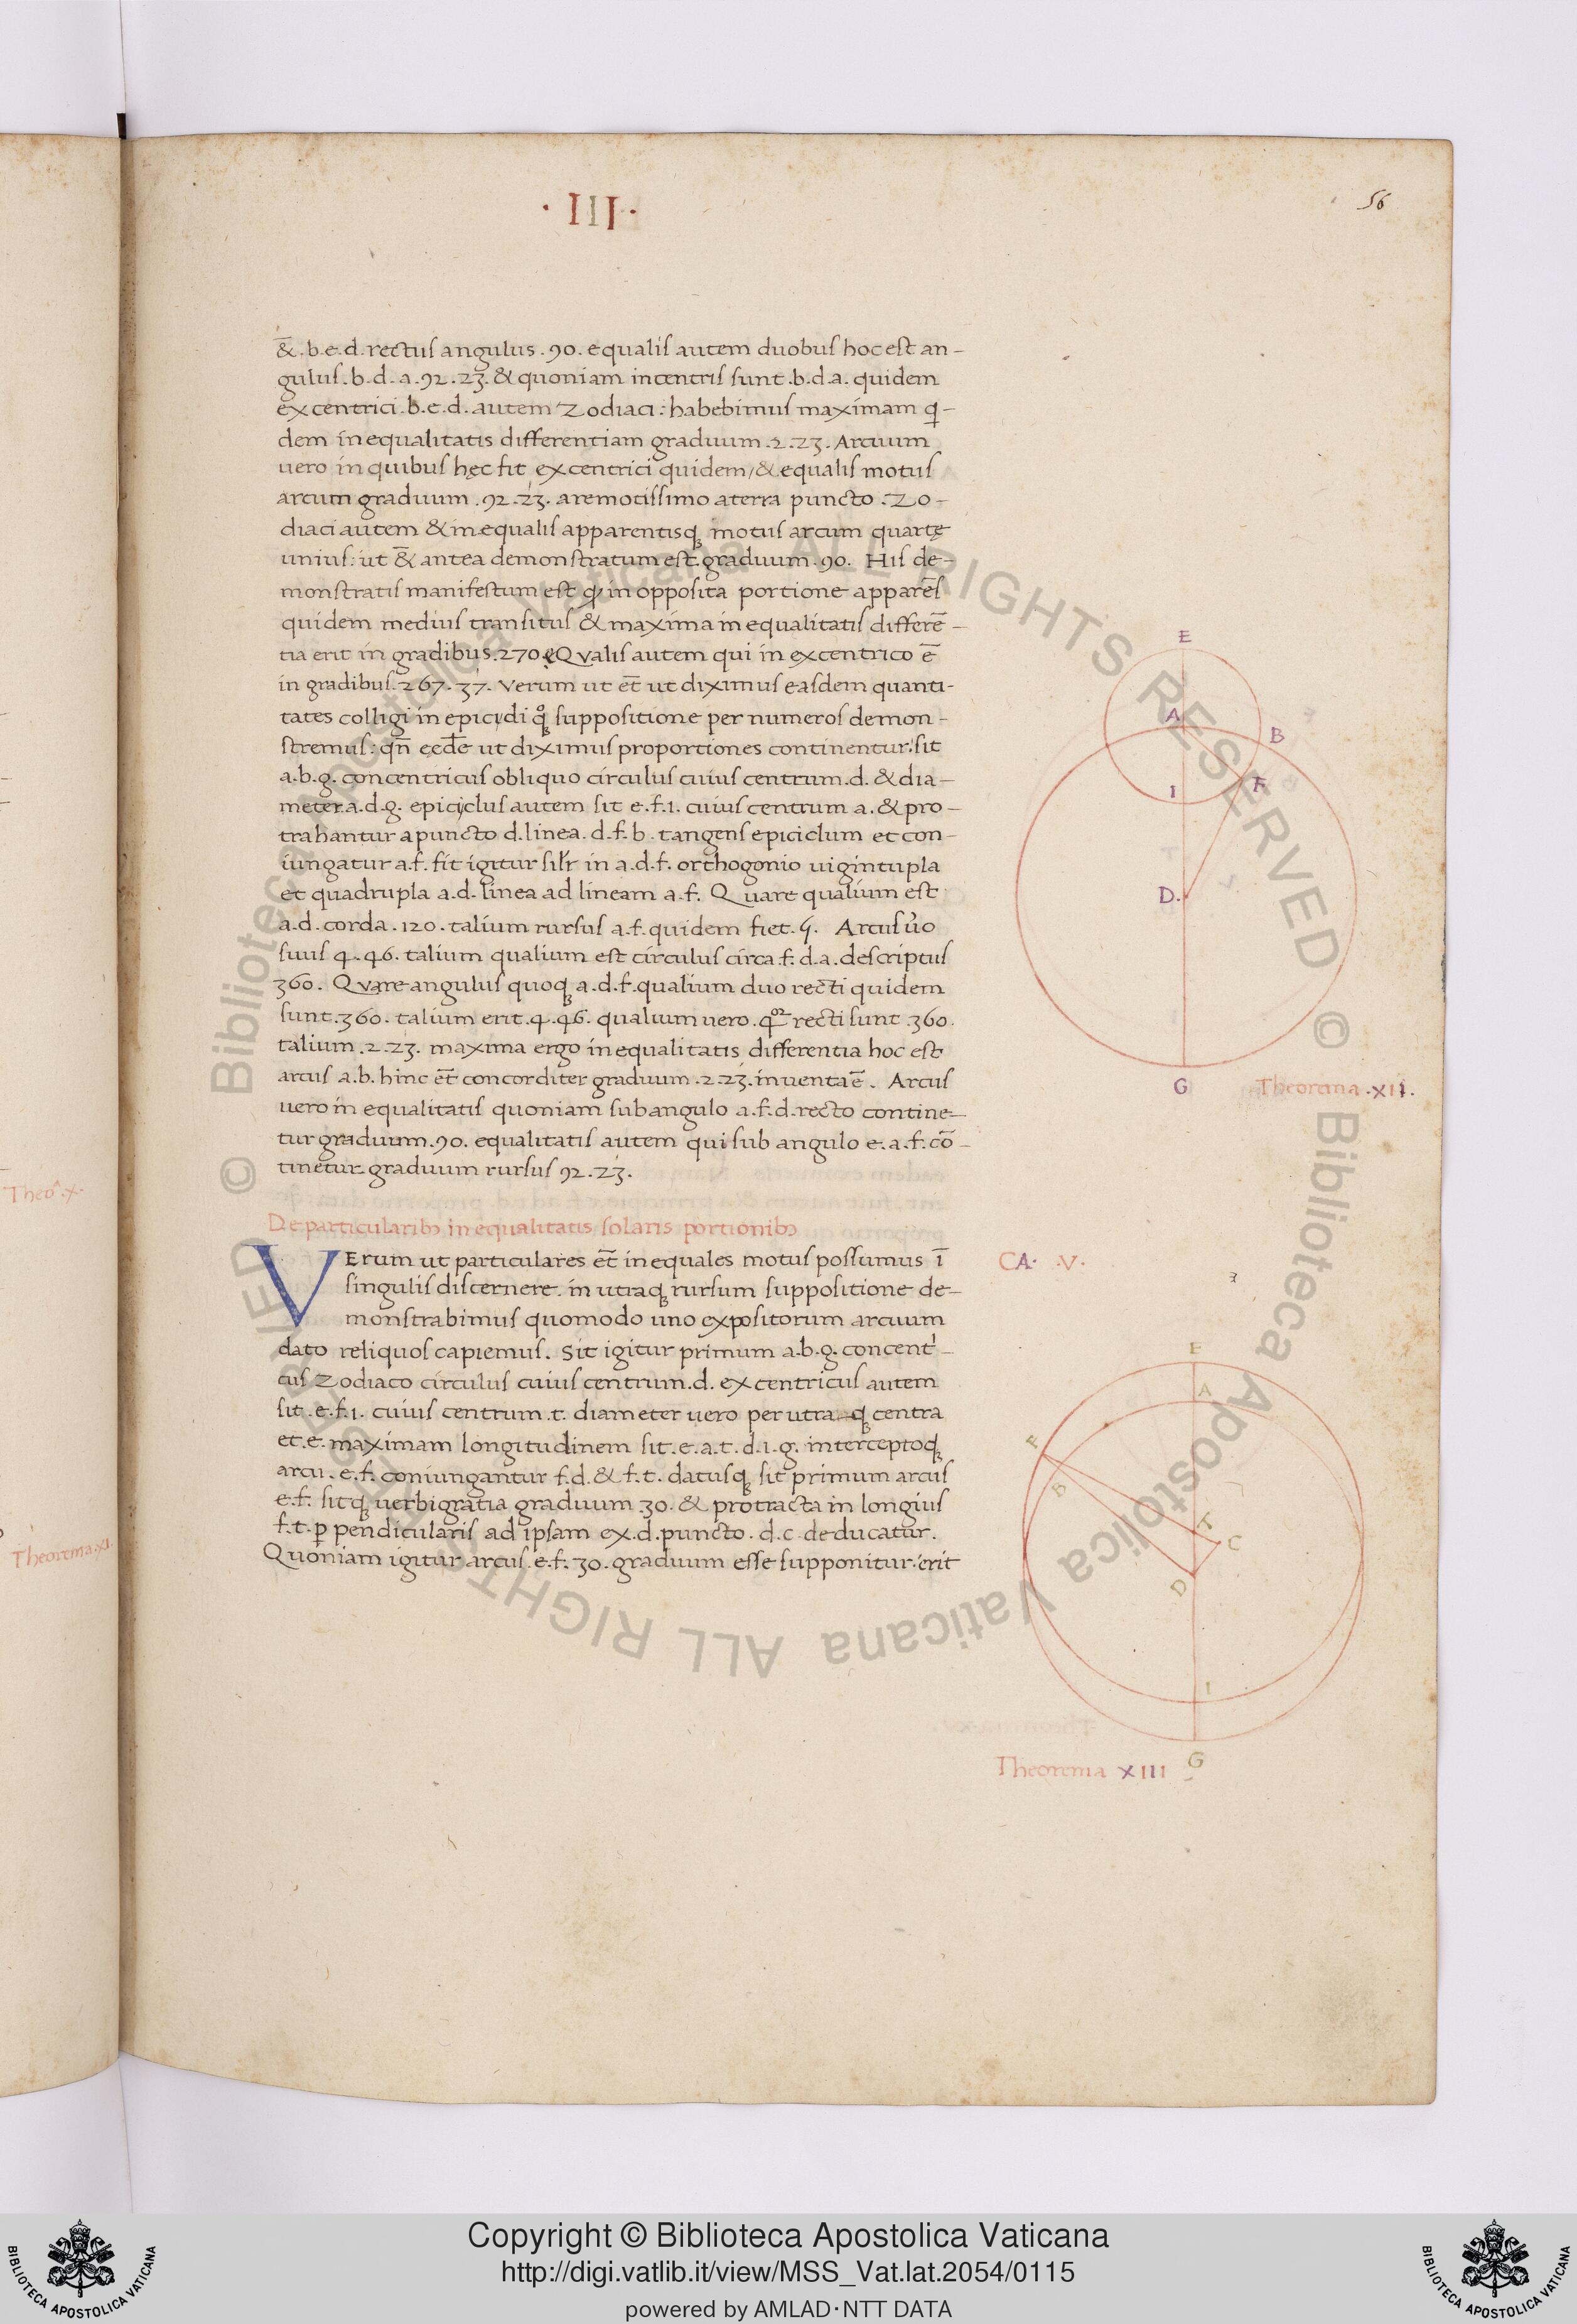 · III ·
56
&̄ . b. e. d. rectus angulus . 90. equalis autem duobus hoc est an-
gulus . b. d. a. 92. 23. & quoniam in centris sunt . b. d. a. quidem
excentrici . b. e. d. autem Zodiaci : habebimus maximam q̱-
dem inequalitatis differentiam graduum . 2. 23. Arcuum
uero in quibus hęc fit excentrici quidem / & equalis motus
arcum graduum . 92. 23. a remotissimo a terra puncto . Zo-
diaci autem & inequalis apparentisqꝫ motus arcum quartę
unius : ut &̄ antea demonstratum est . graduum . 90. His de-
monstratis manifestum est ꝙ in opposita portione apparēs
quidem medius transitus & maxima inequalitatis differē-
tia erit in gradibus . 270 Qualis autem qui in excentrico ē
in gradibus . 267. 37. Verum ut et̄ ut diximus easdem quanti-
tates colligi in epicycli qͦꝫ suppositione per numeros demon-
stremus : qn̄ eędē ut diximus proportiones continentur : sit
a. b. g. concentricus obliquo circulus cuius centrum . d. & dia-
meter . a. d. g. epiciclus autem sit e. f. i. cuius centrum a. & pro-
trahantur a puncto d. linea . d. f. b. tangens epiciclum et con-
iungatur a. f. fit igitur sil̄r in a. d. f. orthogonio uigintupla
et quadrupla a. d. linea ad lineam a. f. Quare qualium est
a. d. corda . 120. talium rursus a. f. quidem fiet . 5. Arcus u̓o
suus 4. 46. talium qualium est circulus circa f. d. a. descriptus
360. Quare angulus quoqꝫ a. d. f. qualium duo recti quidem
sunt . 360. talium erit . 4. 46. qualium uero . qͦꝛ recti sunt . 360.
talium . 2. 23. maxima ergo inequalitatis differentia hoc est
arcus a. b. hinc et̄ concorditer graduum . 2. 23. inuenta ē . Arcus
uero inequalitatis quoniam sub angulo a. f. d. recto contine-
tur graduum . 90. equalitatis autem qui sub angulo e. a. f. cō-
tinetur graduum rursus 92. 23.
De particularibꝰ inequalitatis solaris portionibꝰ
VErum ut particulares et̄ inequales motus possumus ī
singulis discernere . in utraqꝫ rursum suppositione de-
monstrabimus quomodo uno expositorum arcuum
dato reliquos capiemus . Sit igitur primum a. b. g. concentⁱ-
cus Zodiaco circulus cuius centrum . d. excentricus autem
sit . e. f. i. cuius centrum . t. diameter uero per utra-qꝫ centra
et . e. maximam longitudinem sit . e. a. t. d. i. g. interceptoqꝫ
arcu . e. f. coniungantur f. d. & f. t. datusqꝫ sit primum arcus
e. f. sitqꝫ uerbi gratia graduum 30. & protracta in longius
f. t. ꝑpendicularis ad ipsam ex . d. puncto . d. c. deducatur .
Quoniam igitur arcus . e. f. 30. graduum esse supponitur : erit
E
A
B
I
F
D.
G
Theorema . XII.
CA· ·V·
E
A
F
B
T
C
D
I
G
Theorema XIII
Theoᵃ. X.
Theorema. XI.
© Biblioteca Apostolica Vaticana ALL RIGHTS RESERVED © Biblioteca Apostolica Vaticana ALL RIGHTS RESERVED
Copyright © Biblioteca Apostolica Vaticana
http://digi.vatlib.it/view/MSS_Vat.lat.2054/0115
powered by AMLAD·NTT DATA
BIBLIOTECA APOSTOLICA VATICANA
BIBLIOTECA APOSTOLICA VATICANA